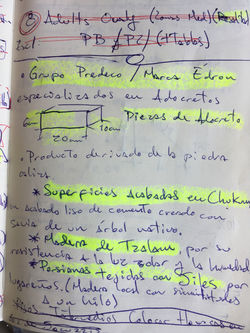 8 Adults Only (Cons Med) (
Incl. PB / PZ / (1Tablos)
• Grupo Predeco / Marca Edron
especializados en Adocretos
6cm 20cm 10cm Piezas de Adocreto
• Producto derivado de la piedra
caliza.
* Superficies acabadas en Chukum
un acabado liso de cemento creado con
savia de un árbol nativo.
* Madera de Tzalam por su
resistencia a la luz solar y la humedad
* Persianas tejidas con Jiles por
lugareños. (Madera local con similitudes
a un hilo)
Intermedios Colocar